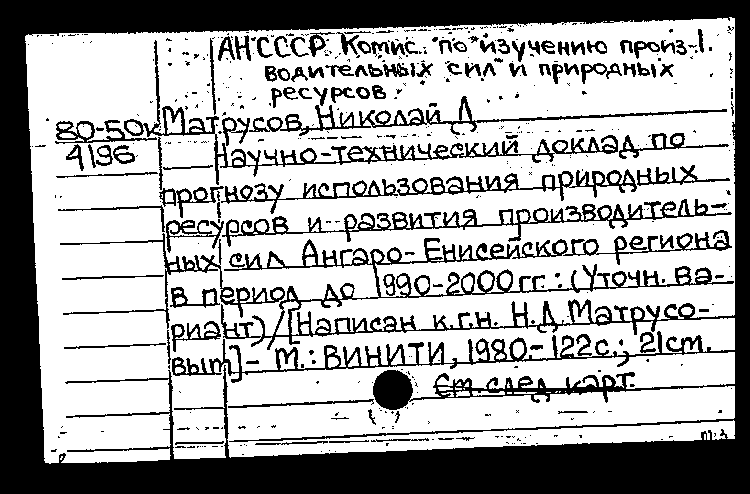 АН СССР. Комис. по изучению произ- 1.
водительных сил и природных
ресурсов.
80-50к Матрусов, Николай Д
4196 Научно-технический доклад по
прогнозу использования природных
ресурсов и развития производитель-
ных сил Ангаро-Енисейского региона
в период до 1990-2000 гг.: (Уточн. ва-
риант) / [Написан к.г.н. Н.Д. Матрусо-
вым] - М.: ВИНИТИ, 1980.- 122с.; 21см.
См. след. карт.